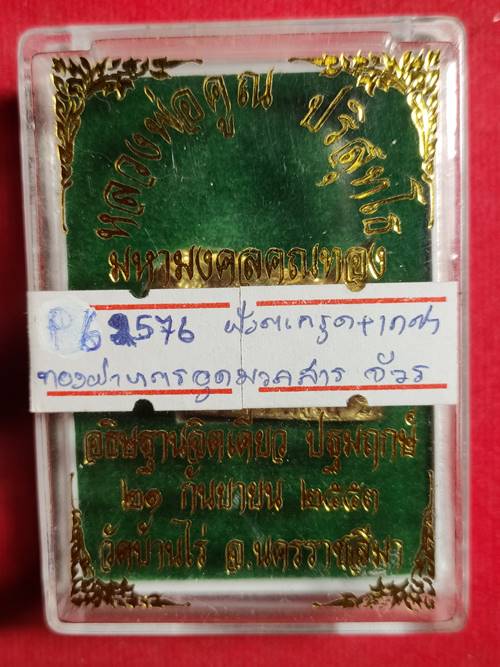 หลวงพ่อคูณ ปริสุทฺโธ
มหามงคลคูณทอง
P62576 ฝังตะกรุด+เกศา
ทองฝาบาตรอุดมวลสาร จีวร
อธิษฐานจิตเดี่ยว ปฐมฤกษ์
๒๑ กันยายน ๒๕๕๓
วัดบ้านไร่ จ.นครราชสีมา